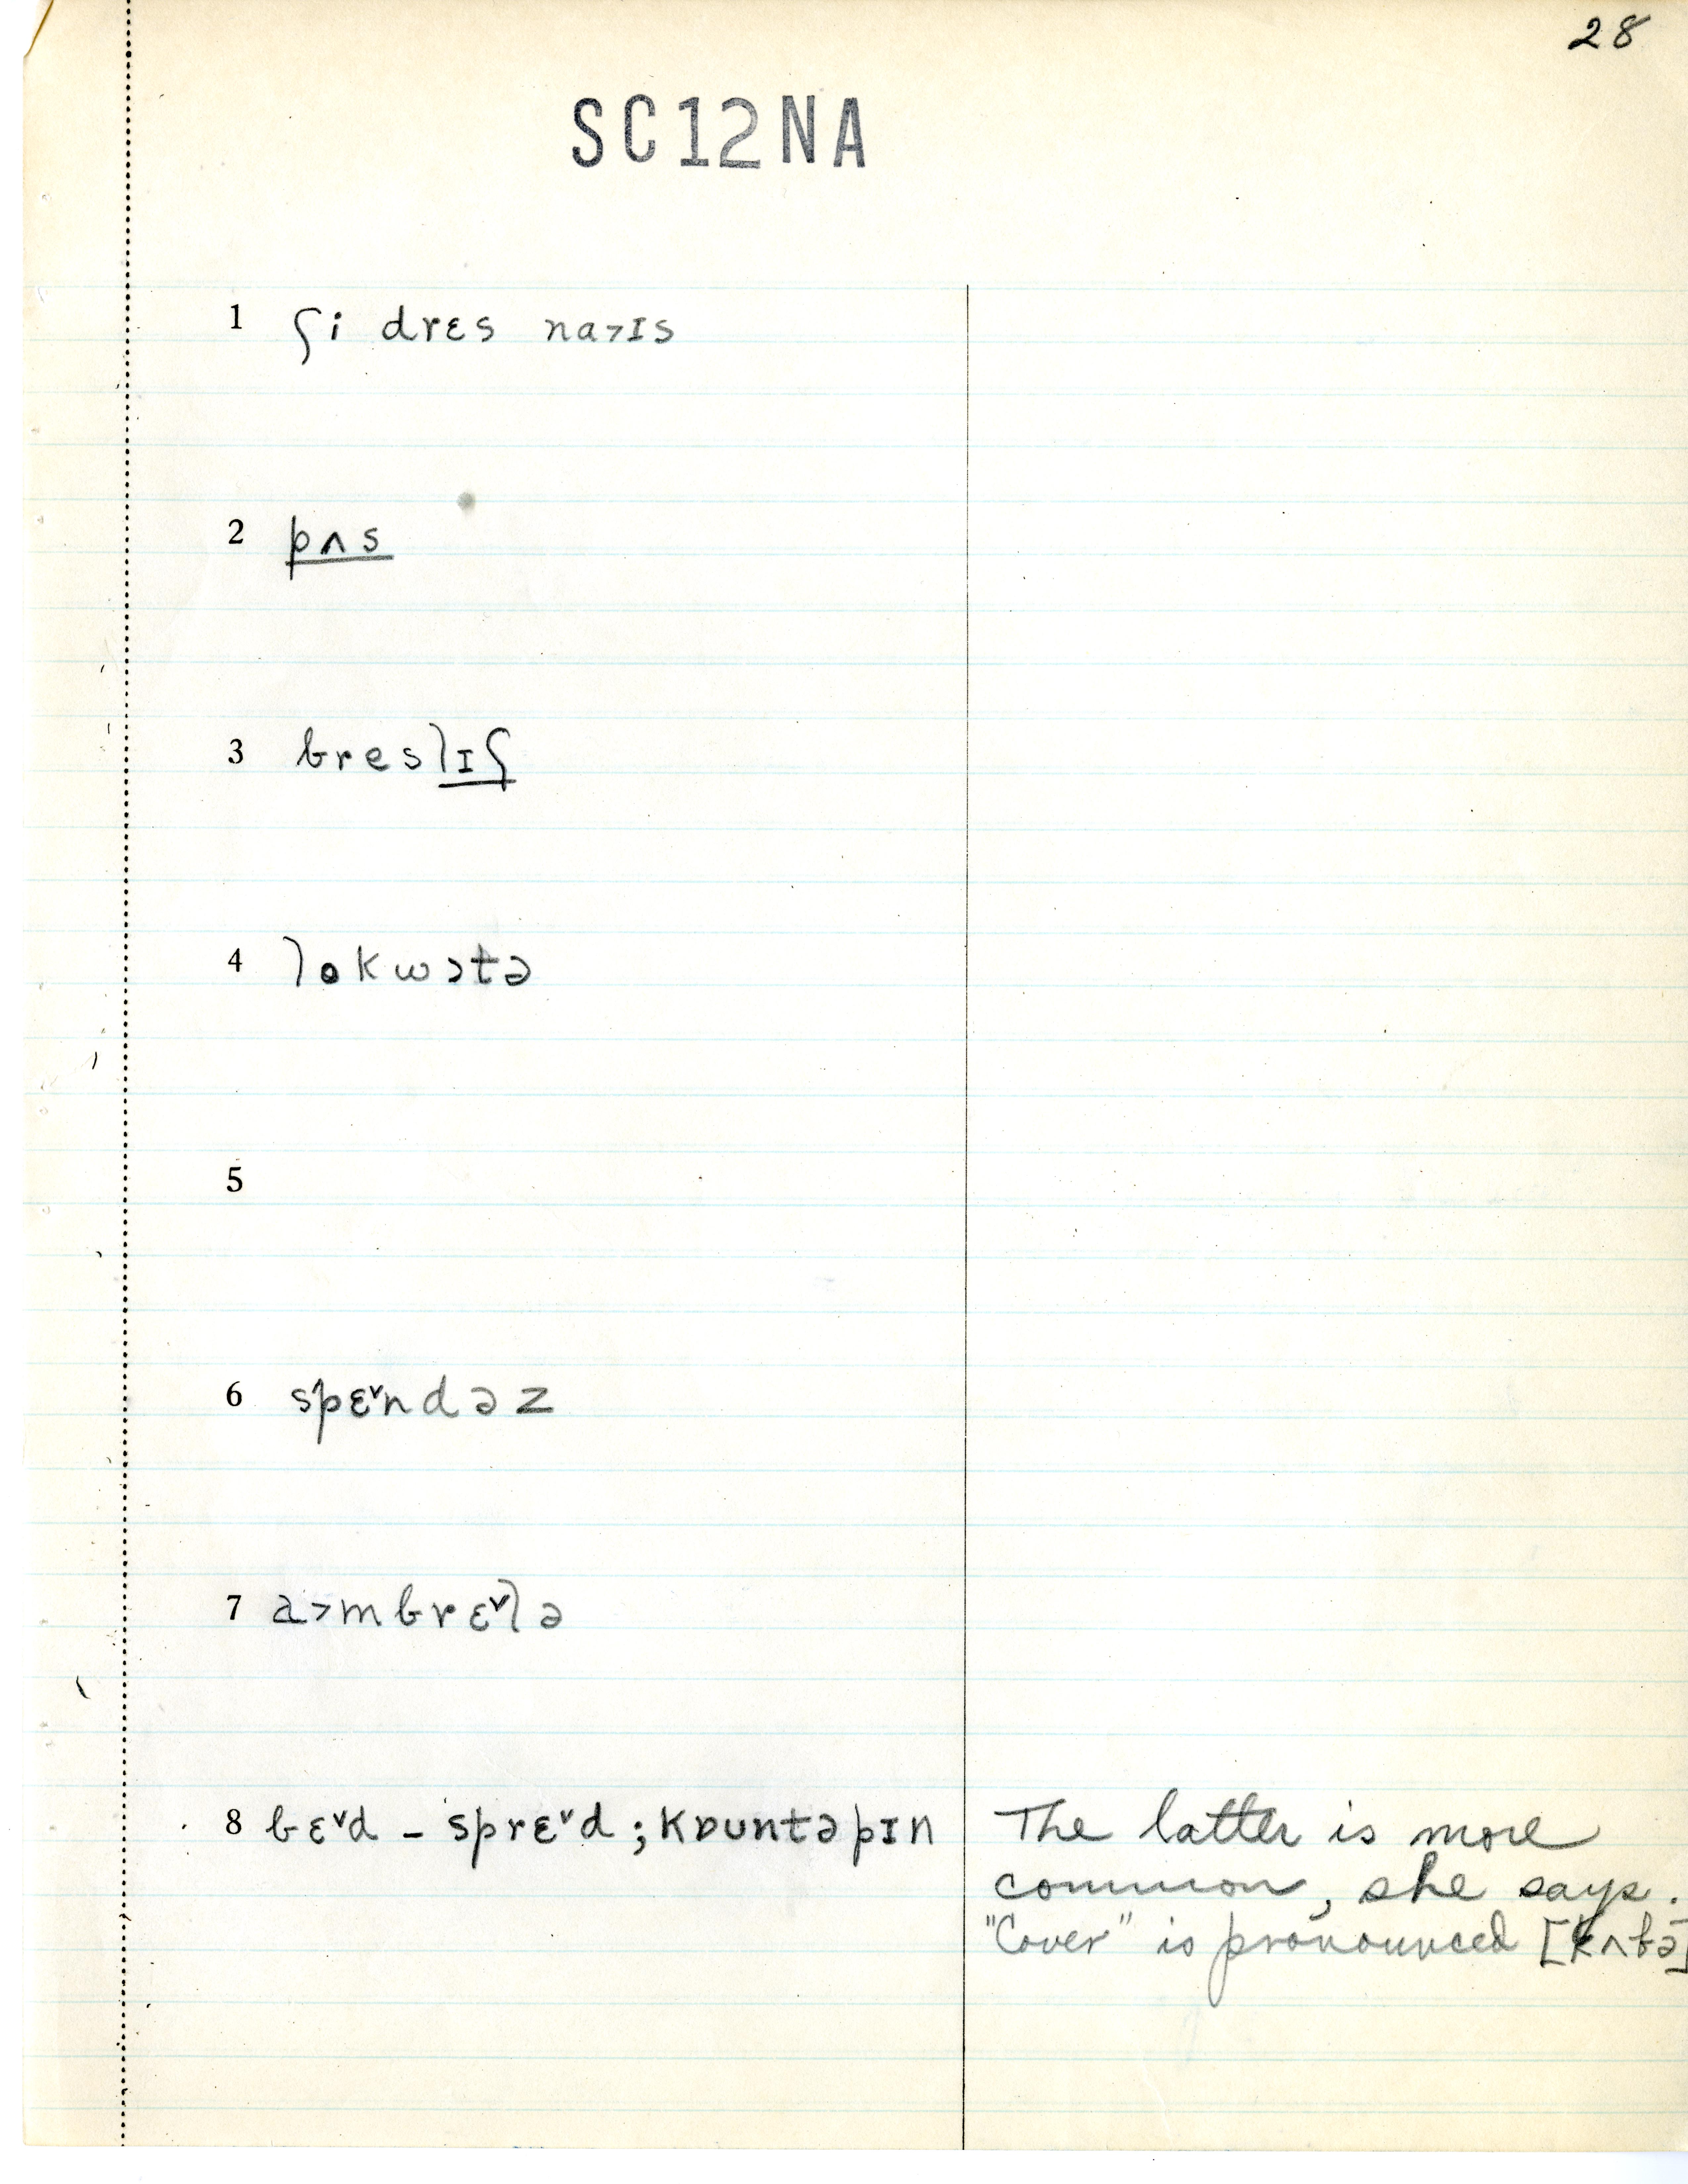 28
SC12NA
1 ʃi drɛs na˃ɪs
2 pʌs
3 breslɪʃ
4 lokwɔtə
5
6 spɛ˅ndəz
7 a˃mbrɛ˅lə
8 bɛ˅d - sprɛ˅d; kɒuntəpɪn
The latter is more
common, she says.
"Cover" is pronounced [kʌbə]